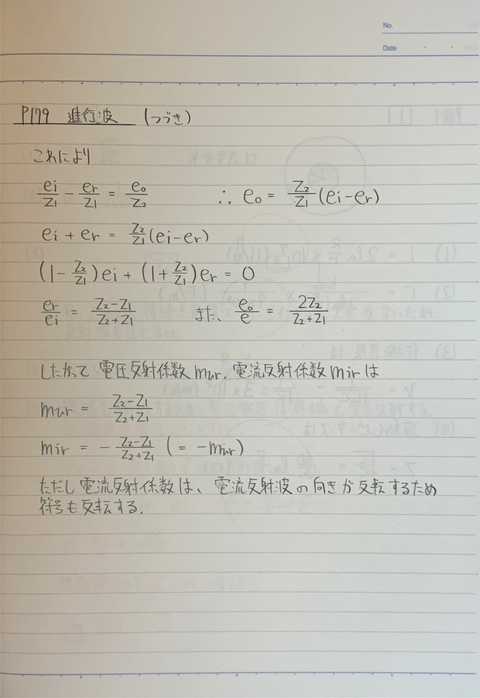 No.
Date
P179 進行波 (つづき)
これにより
ei/Z1 - er/Z1 = eo/Z2 ∴ eo = Z2/Z1 (ei - er)
ei + er = Z2/Z1 (ei - er)
(1 - Z2/Z1) ei + (1 + Z2/Z1) er = 0
er/ei = Z2-Z1/Z2+Z1 また、 eo/e = 2Z2/Z2+Z1
したがって 電圧反射係数 mur, 電流反射係数 mir は
mur = Z2-Z1/Z2+Z1
mir = - Z2-Z1/Z2+Z1 (= -mur)
ただし 電流反射係数は、電流反射波の向きが反転するため
符号も反転する.